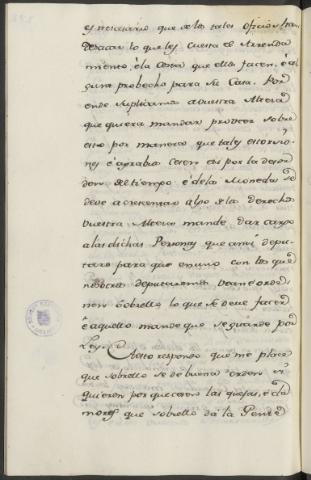 es necesario que de los tales oficios han
de sacar lo que les cuesta el Arrenda
miento, é la costa que ellos facen, é al
guna probecho para su Casa. Por
ende suplicamos a vuestra Alteza
que quiera mandar proveer sobre
esto por manera que tales estorsio
nes é agrabios cesen é si por la desor
den del tiempo é dela Moneda se
deve acrecentar algo de los derechos
vuestra Alteza mande dar cargo
alas dichas Personas que ansi depu
tare para que en uno con los que
nosotros deputaremos vean é orde
nen sobrello lo que se deve facer
é aquello mande que se guarde por
Ley.
Aesto respondo que me place
que sobrello se de buena orden si
quieren por que cesen las quejas, é cla
mores que sobrello dá la Gente